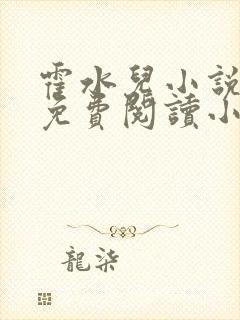 霍水兒小說
免費閱讀小
龍柒